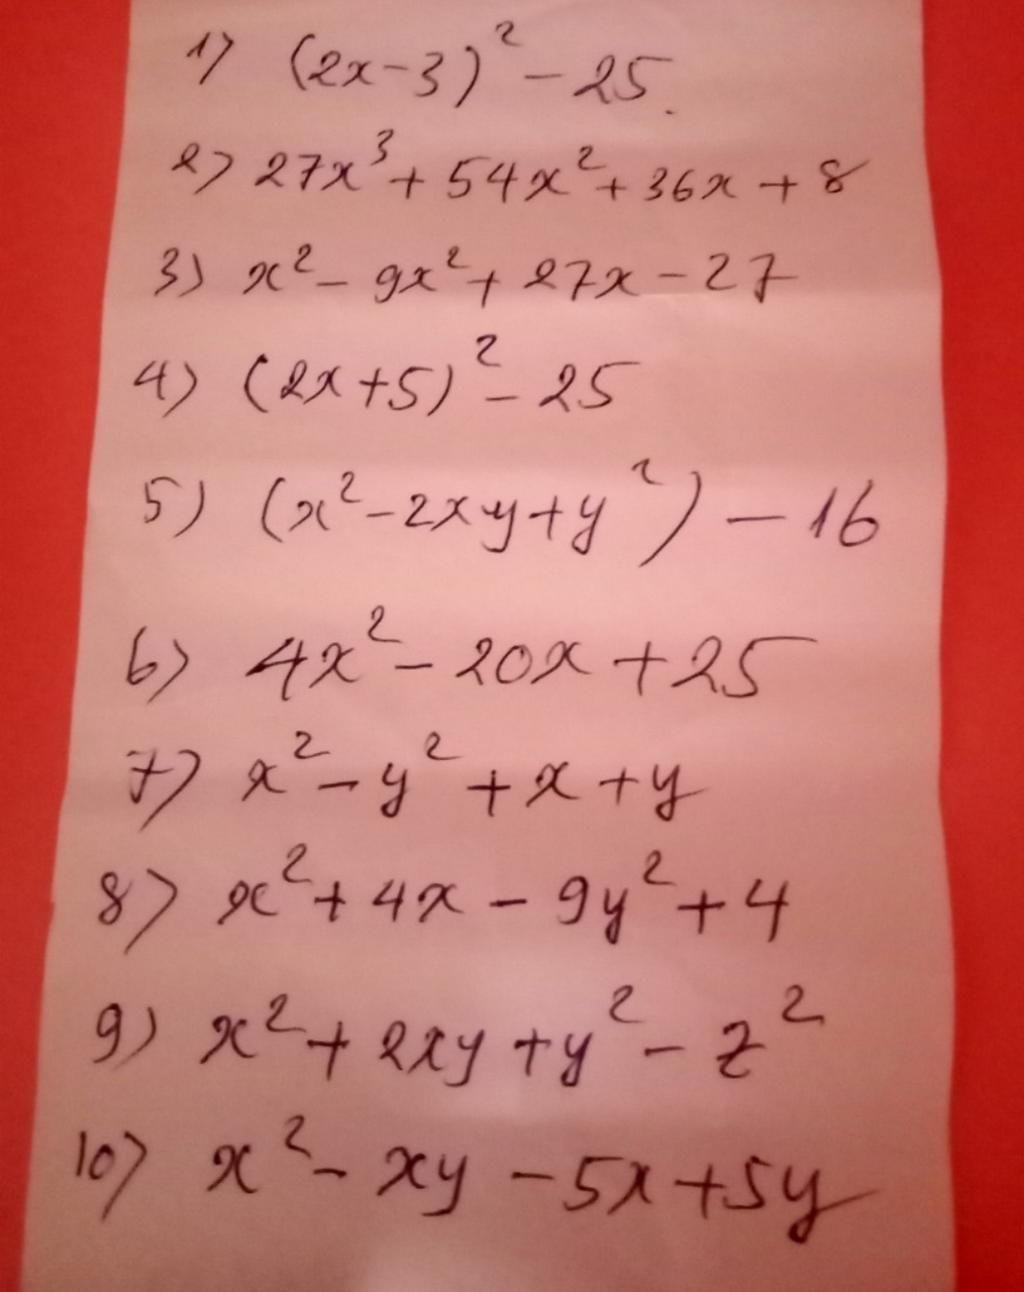 1) (2x-3)² - 25.
2) 27x³ + 54x² + 36x + 8
3) x² - 9x² + 27x - 27
4) (2x+5)² - 25
5) (x² - 2xy + y²) - 16
6) 4x² - 20x + 25
7) x² - y² + x + y
8) x² + 4x - 9y² + 4
9) x² + 2xy + y² - z²
10) x² - xy - 5x + 5y